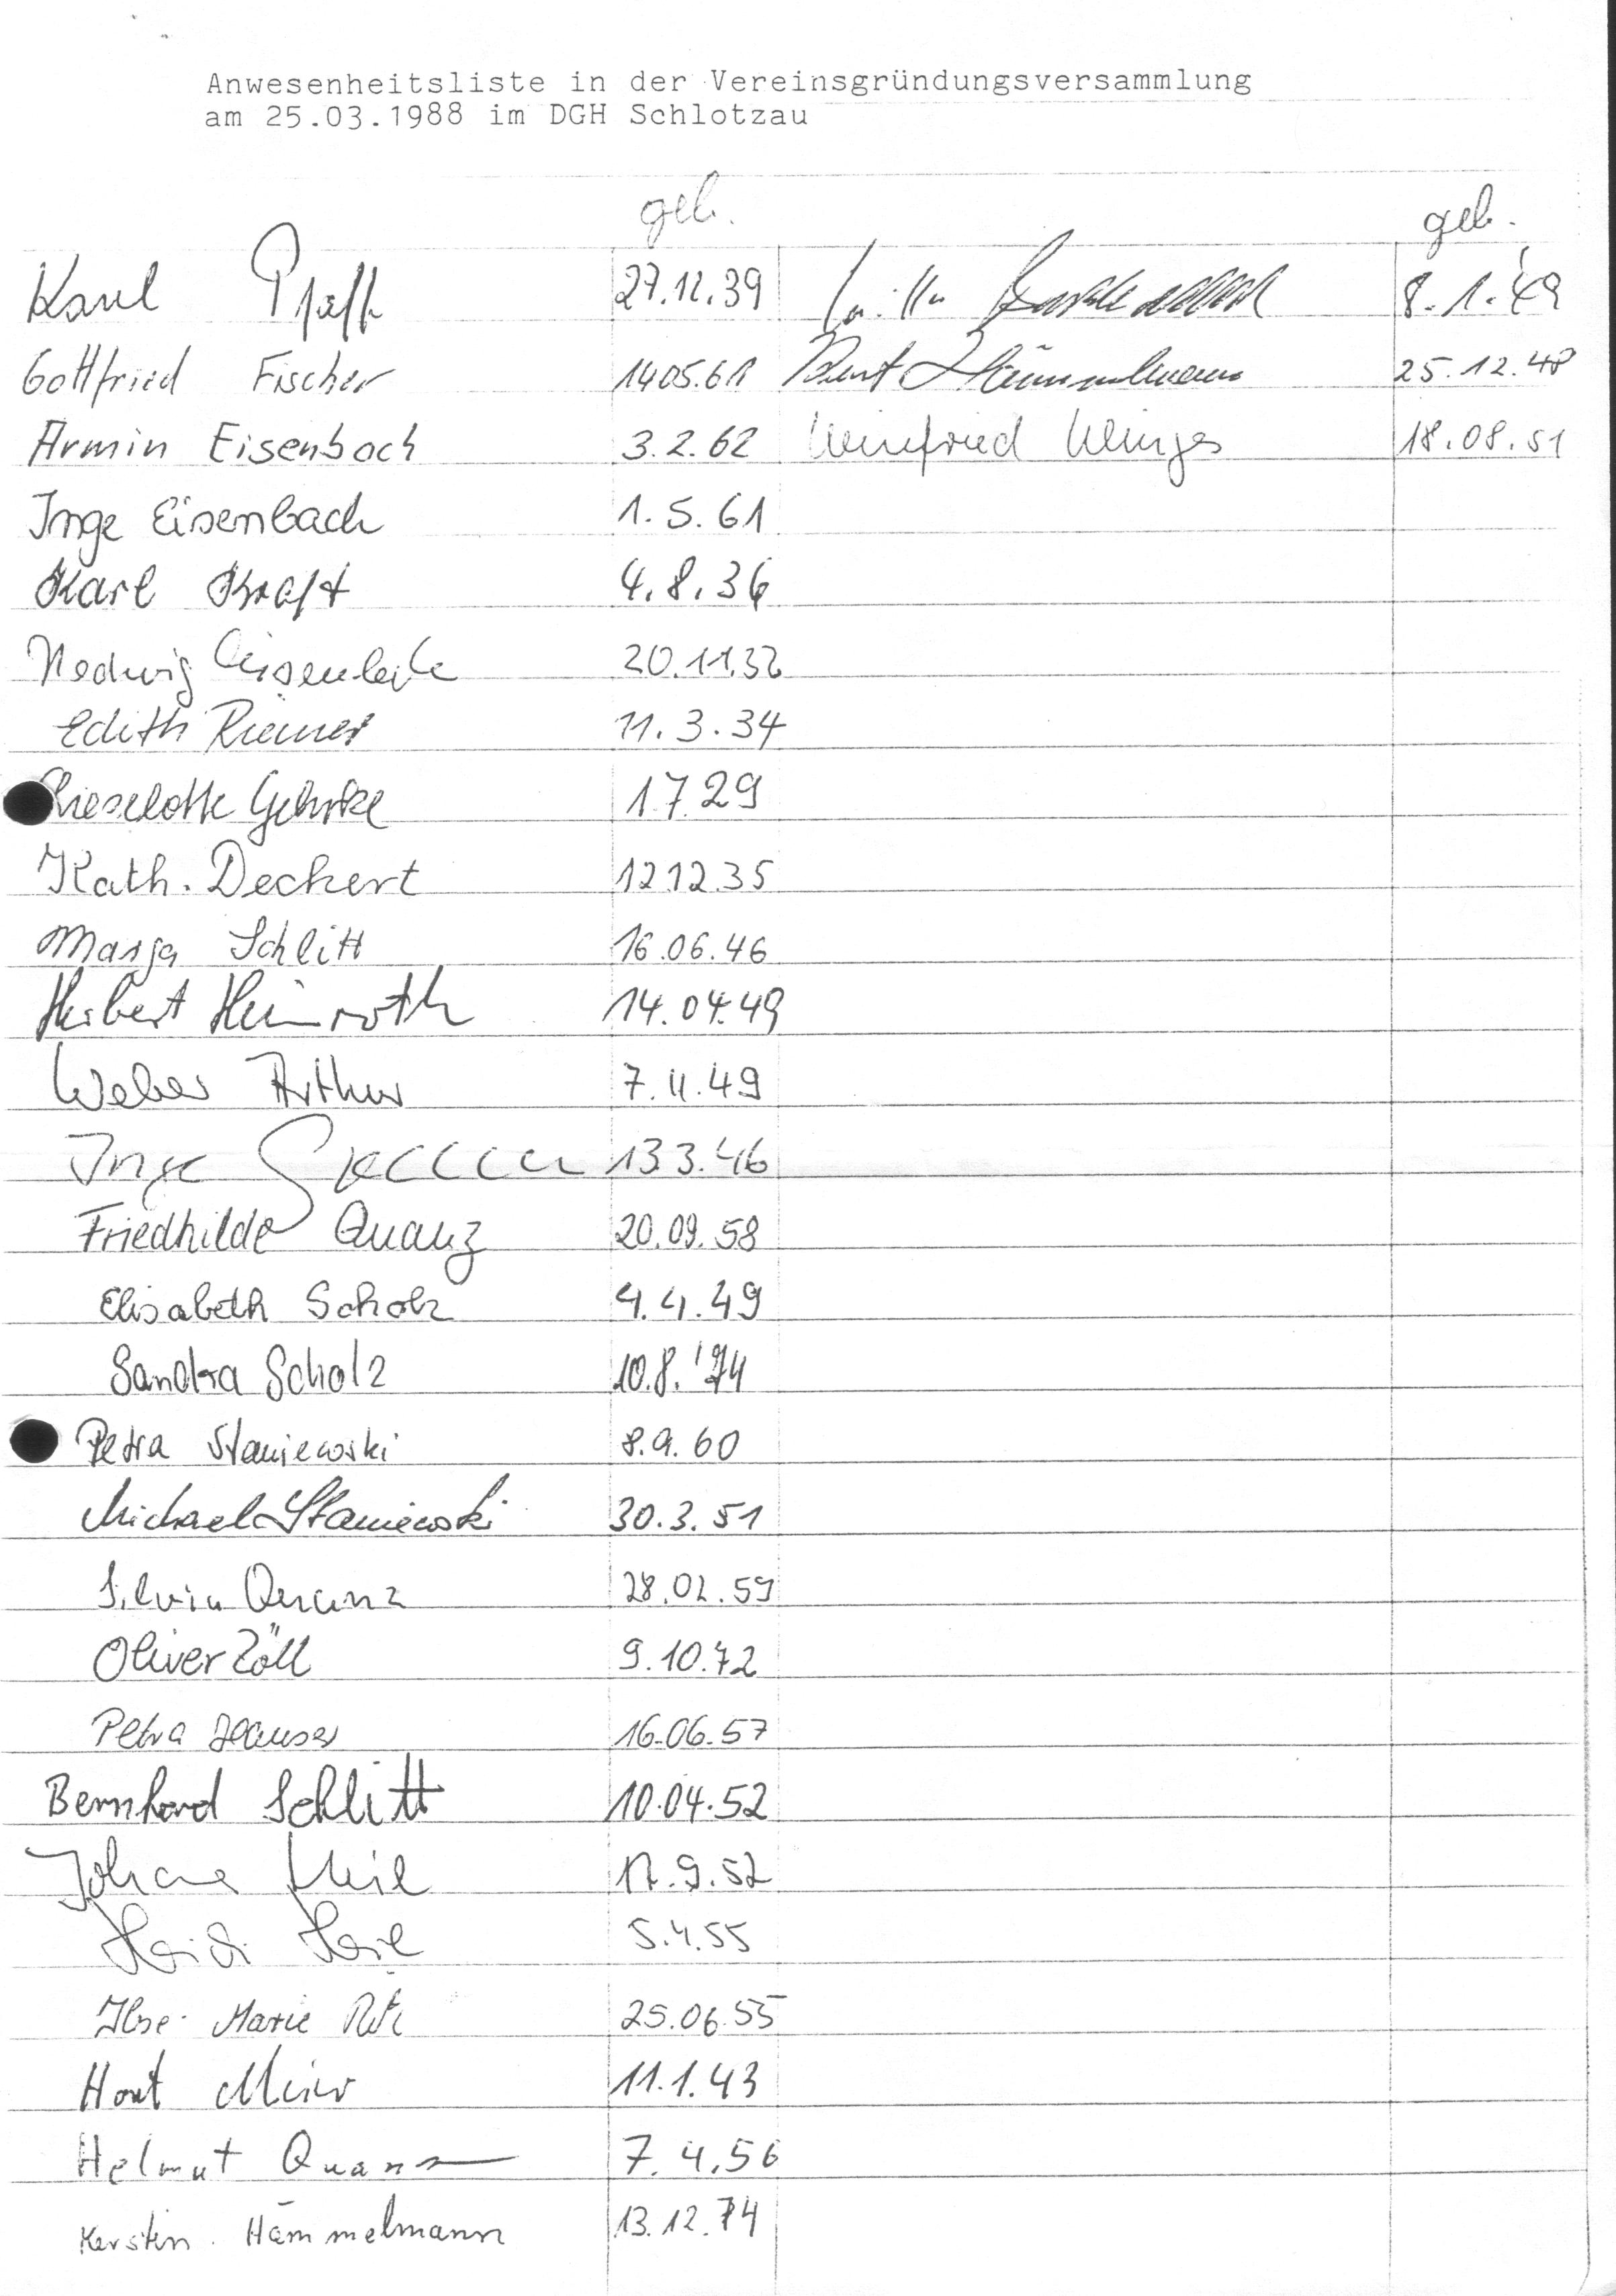 Anwesenheitsliste in der Vereinsgründungsversammlung
am 25.03.1988 im DGH Schlotzau
geb. geb.
Karl Pfaff 27.12.39 8.1.'49
Gottfried Fischer 14.05.61 Kurt Hämmelmann 25.12.48
Armin Eisenbach 3.2.62 Winfried Winges 18.08.51
Inge Eisenbach 1.5.61
Karl Kraft 4.8.36
Hedwig Eisenbach 20.11.32
Edith Riemer 11.3.34
Lieselotte Gehrke 1.7.29
Kath. Deckert 12.12.35
Marga Schlitt 16.06.46
Herbert Heinroth 14.04.49
Weber Arthur 7.11.49
Inge 13.3.46
Friedhilde Quanz 20.09.58
Elisabeth Scholz 4.4.49
Sandra Scholz 10.8.'74
Petra Staniewski 8.9.60
Michael Staniewski 30.3.51
Silvia Quanz 28.02.59
Oliver Zöll 9.10.72
Petra Hauser 16.06.57
Bernhard Schlitt 10.04.52
Johann 17.9.52
Heidi 5.4.55
Ilse-Marie 25.06.55
Horst Meier 11.1.43
Helmut Quanz 7.4.56
Kerstin Hämmelmann 13.12.74